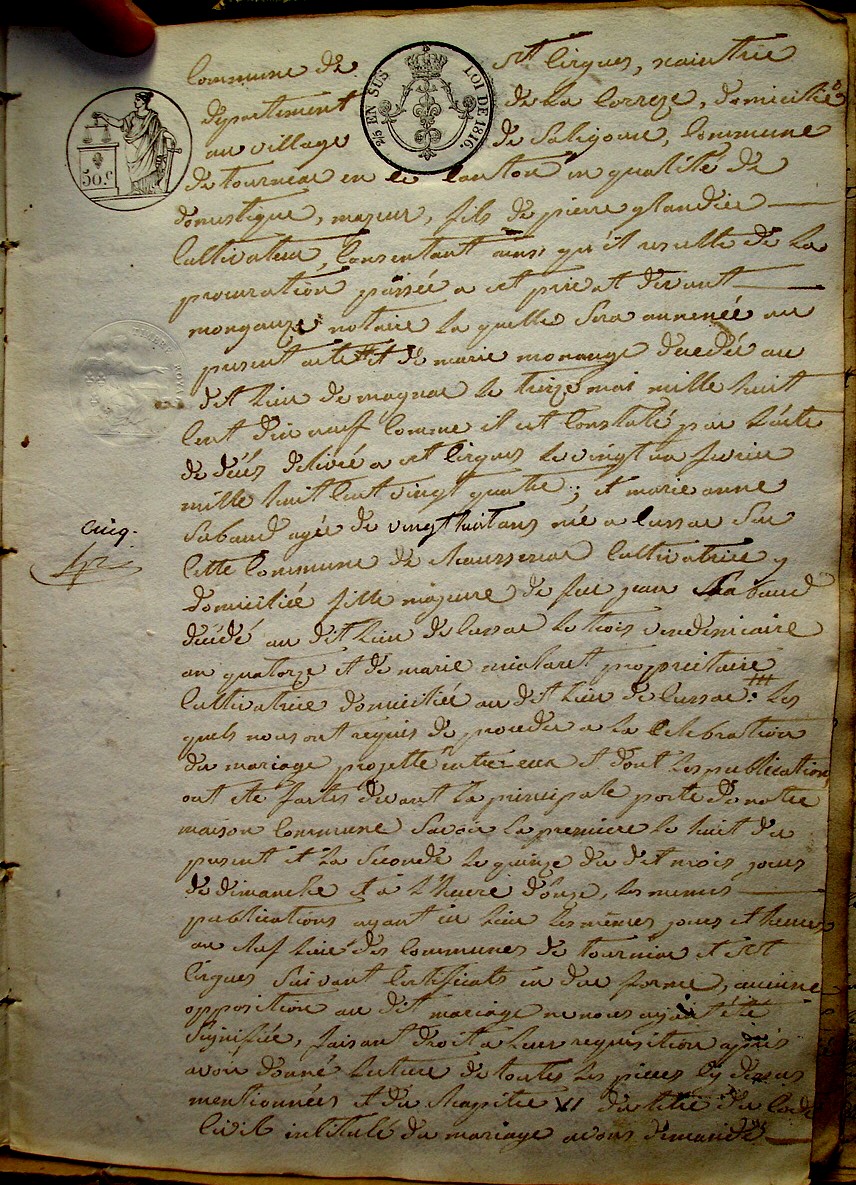 2/5 EN SUS LOI DE 1816.
50.c
TIMBRE ROYAL
Commune de st Cirgues, xaintrie
département de la Correze, domicilié
au village de Saligoux, Commune
de tourniac en le Canton en qualité de
domestique, majeur, fils de pierre glandier
Cultivateur, Consentant ainsi qu'il resulte de la
procuration passée a st privat devant
notaire la quelle sera annexée au
present acte Et de marie monange décedée au
dit lieu de magnac le treize mai mille huit
Cent dix neuf Comme il est Constaté par l'acte
de décés délivré a st Cirgues le vingt un fevrier
mille huit Cent vingt quatre; et marie anne
Sabaud agée de vingt huit ans née a lussac Sur
Cette Commune de Chaussenac Cultivatrice y
domiciliée fille majeure de feu jean Sabaud
décédé au dit lieu de lussac le trois vendemiaire
an quatorze et de marie mialaret propriétaire
Cultivatrice domiciliée au dit lieu de lussac: Les
quels nous ont requis de proceder a la Celebration
du mariage projetté entre eux et dont les publications
ont été faites devant la principale porte de notre
maison Commune Savoir la premiere le huit du
present et la Seconde le quinze du dit mois jours
de dimanche et a l'heure d'onze, les memes
publications ayant eu lieu les mêmes jours et heures
au chef lieu des Communes de tourniac et st
Cirgues Suivant Certificats en due forme, aucune
opposition au dit mariage ne nous ayant été
Signifiée, faisant droit a leur requisition après
avoir donné lecture de toutes les pieces Cy dessus
mentionnées et du Chapitre VI du titre du Code
Civil intitulé du mariage avons demandé
Cinq.